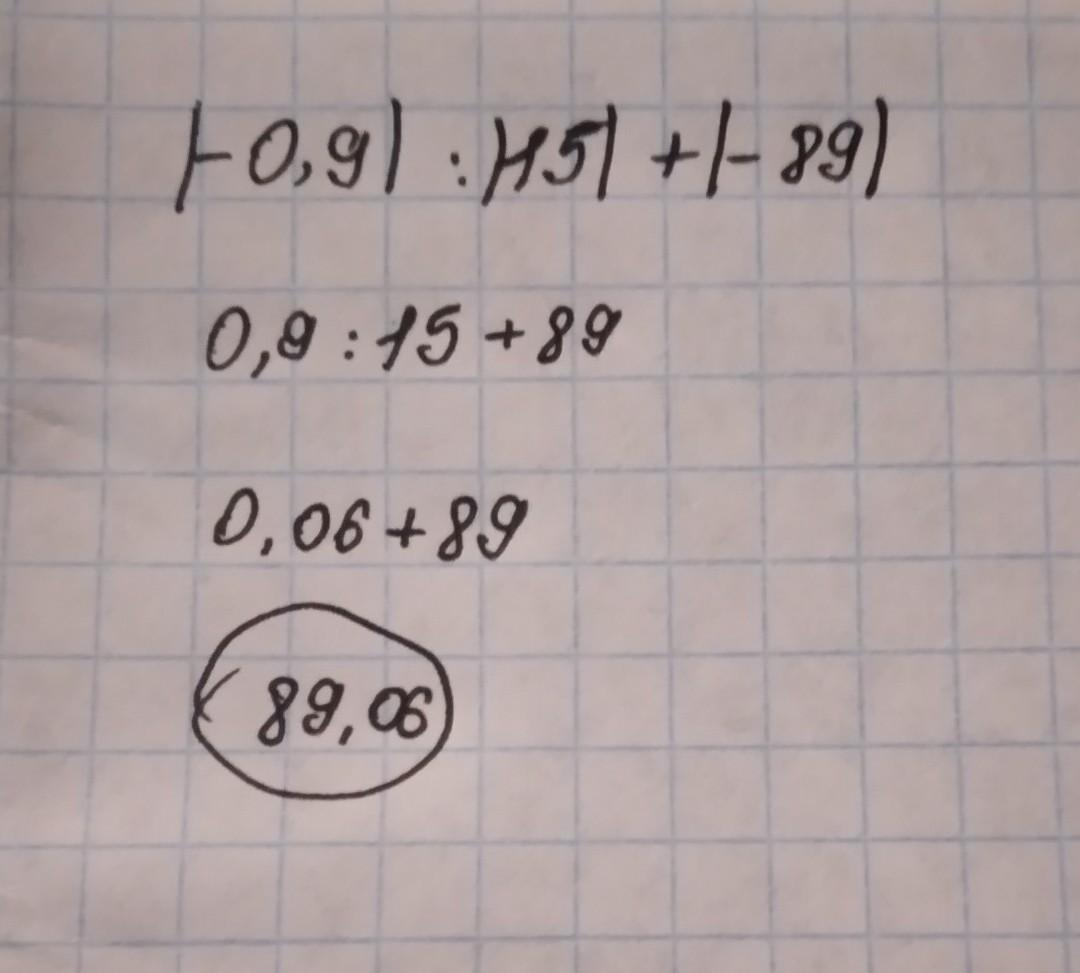 |-0,9| : |-15| + |-89|
0,9 : 15 + 89
0,06 + 89
89,06